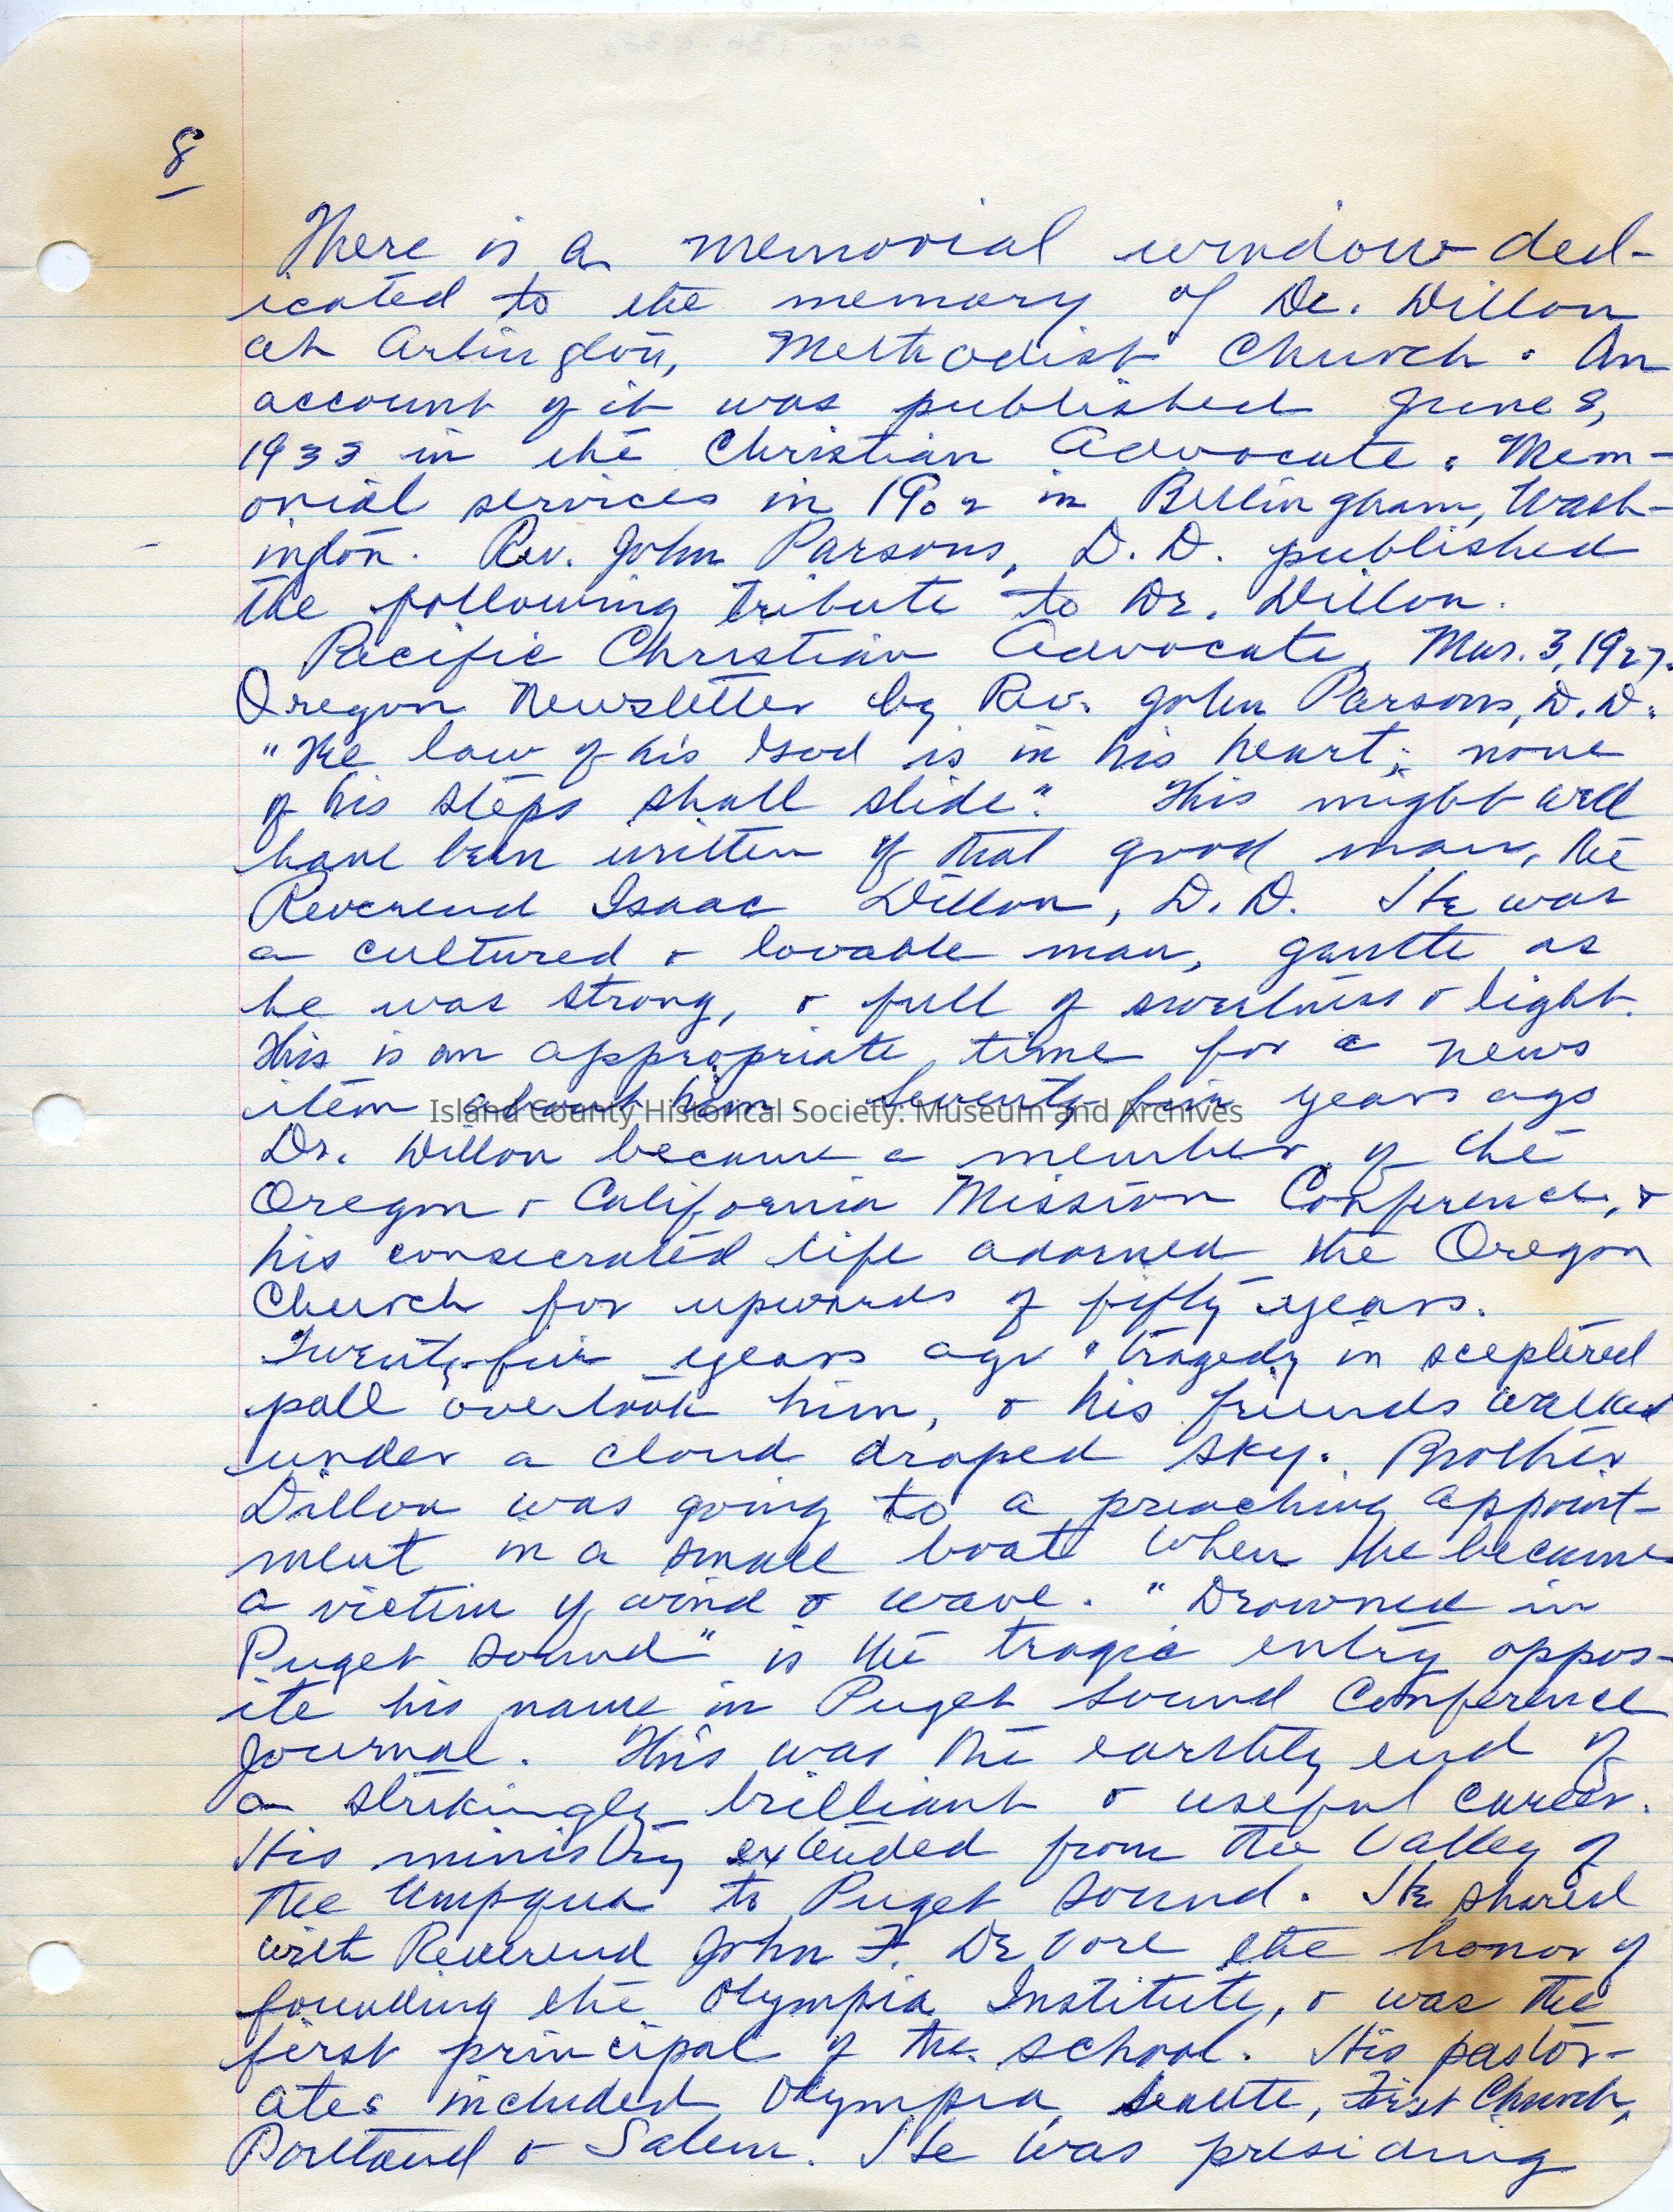 8
There is a memorial window ded-
icated to the memory of Dr. Dillon
at Arlington, Methodist Church. An
account of it was published June 8,
1933 in the Christian Advocate. Mem-
orial services in 1902 in Bellingham, Wash-
ington. Rev. John Parsons, D.D. published
the following tribute to Dr. Dillon.
Pacific Christian Advocate, Mar. 3, 1927.
Oregon Newsletter by Rev. John Parsons, D.D.
"The law of his God is in his heart; none
of his steps shall slide". This might well
have been written of that good man, the
Reverend Isaac Dillon, D.D. He was
a cultured & lovable man, gentle as
he was strong, & full of sweetness & light.
This is an appropriate time for a news
item about him. Seventy-five years ago
Island County Historical Society: Museum and Archives
Dr. Dillon became a member of the
Oregon & California Mission Conference, &
his consecrated life adorned the Oregon
Church for upwards of fifty years.
Twenty-five years ago "tragedy in sceptered
pall overtook him, & his friends walked
under a cloud draped sky. Brother
Dillon was going to a preaching appoint-
ment in a small boat when he became
a victim of wind & wave. "Drowned in
Puget Sound" is the tragic entry oppos-
ite his name in Puget Sound Conference
Journal. This was the earthly end of
a strikingly brilliant & useful career.
His ministry extended from the Valley of
the Umpqua to Puget Sound. He shared
with Reverend John F. DeVore the honor of
founding the Olympia Institute, & was the
first principal of the school. His pastor-
ates included Olympia, Seattle, First Church,
Portland & Salem. He was presiding